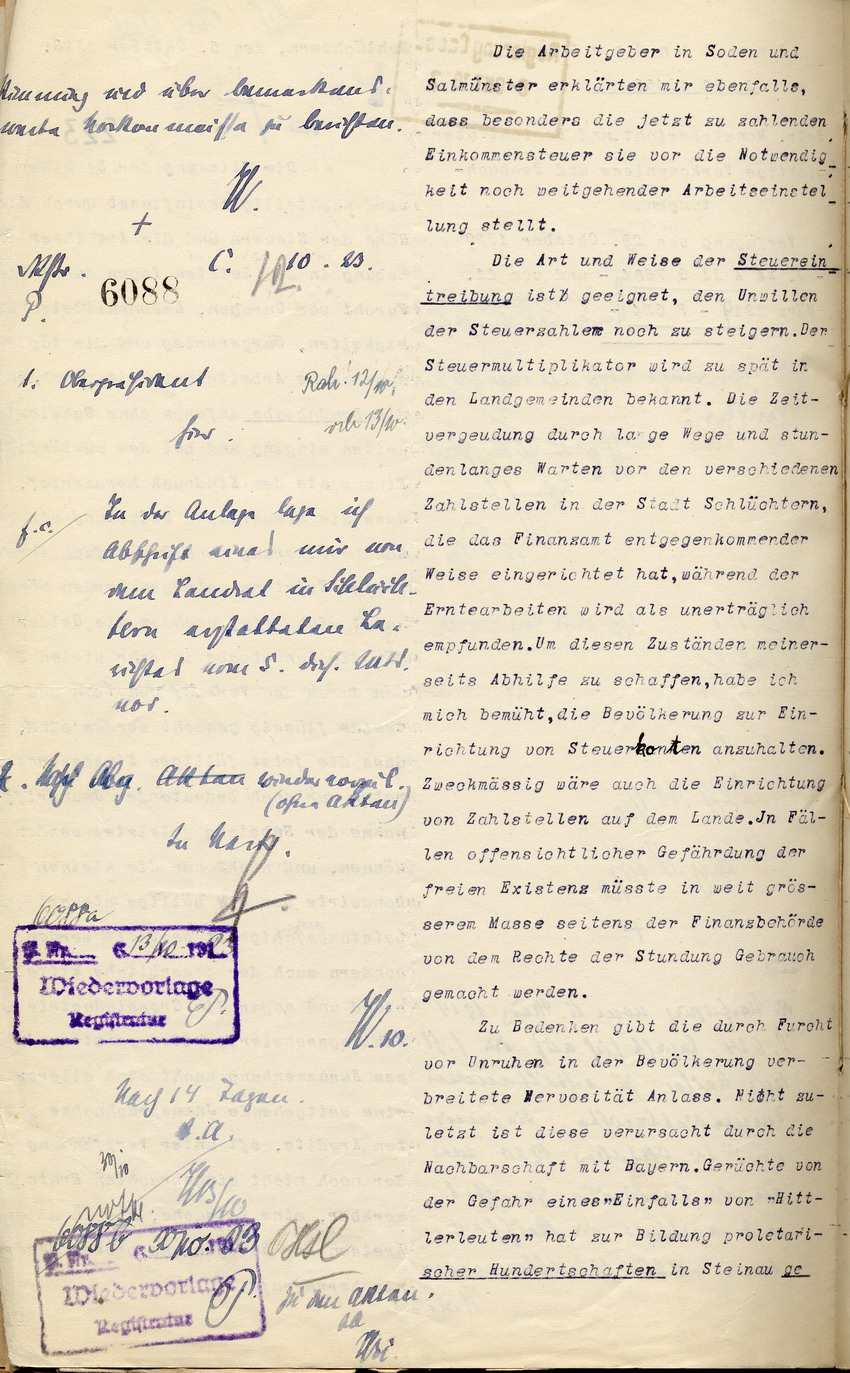 Stimmung und über bemerkens-
werte Vorkommnisse zu berichten.
W.
+
C. 10.23.
P. 6088
1. Oberpräsident
hier.
Rah! 12/10.
13/10.
f.c.
In der Anlage lege ich
Abschrift eines mir von
dem Landrat in Schlüch-
tern erstatteten Be-
richtes vom 5. ds. Mts.
vor.
Nach Abg. Akten wieder vorzul.
(ohne Akten)
6088a
J. Nr. 6 13/10 1923
Wiedervorlage
Registratur
W. 10.
Nach 14 Tagen.
I.A.
13/10
30/10
6088b
J. Nr.
Wiedervorlage
Registratur
zu den Akten.
Die Arbeitgeber in Soden und
Salmünster erklärten mir ebenfalls,
dass besonders die jetzt zu zahlenden
Einkommensteuer sie vor die Notwendig_
keit noch weitgehender Arbeitseinstel_
lung stellt.
Die Art und Weise der Steuerein_
treibung ist geeignet, den Unwillen
der Steuerzahler noch zu steigern.Der
Steuermultiplikator wird zu spät in
den Landgemeinden bekannt. Die Zeit-
vergeudung durch lange Wege und stun-
denlanges Warten vor den verschiedenen
Zahlstellen in der Stadt Schlüchtern,
die das Finanzamt entgegenkommender
Weise eingerichtet hat,während der
Erntearbeiten wird als unerträglich
empfunden.Um diesen Zuständen meiner-
seits Abhilfe zu schaffen,habe ich
mich bemüht,die Bevölkerung zur Ein-
richtung von Steuerkonten anzuhalten.
Zweckmässig wäre auch die Einrichtung
von Zahlstellen auf dem Lande.Jn Fäl-
len offensichtlicher Gefährdung der
freien Existenz müsste in weit grös-
serem Masse seitens der Finanzbehörde
von dem Rechte der Stundung Gebrauch
gemacht werden.
Zu Bedenken gibt die durch Furcht
vor Unruhen in der Bevölkerung ver-
breitete Nervosität Anlass. Nicht zu-
letzt ist diese verursacht durch die
Nachbarschaft mit Bayern.Gerüchte von
der Gefahr eines"Einfalls" von "Hitt-
lerleuten" hat zur Bildung proletari-
scher Hundertschaften in Steinau ge